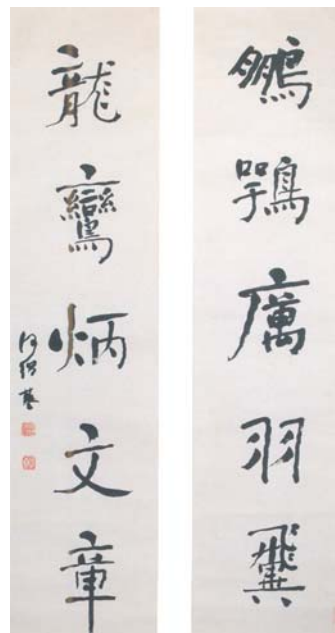 鵬鶚厲羽翼
龍鸞炳文章
何紹基